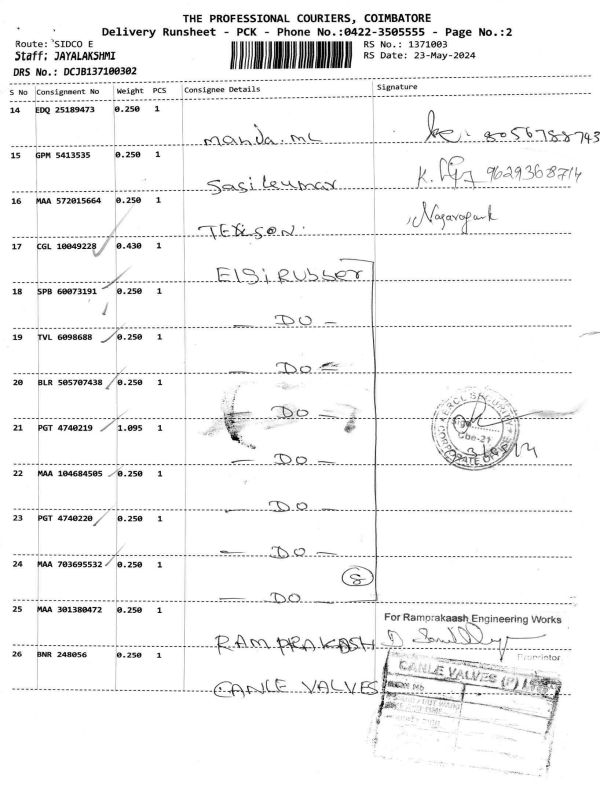 THE PROFESSIONAL COURIERS, COIMBATORE
Delivery Runsheet - PCK - Phone No.:0422-3505555 - Page No.:2
Route: SIDCO E
RS No.: 1371003
Staff: JAYALAKSHMI
RS Date: 23-May-2024
DRS No.: DCJB137100302
S No Consignment No Weight PCS Consignee Details Signature
14 EDQ 25189473 0.250 1
8056788743
15 GPM 5413535 0.250 1
Sasikumar K. 9629368714
16 MAA 572015664 0.250 1
TEXSON.
17 CGL 10049228 0.430 1
Elgi Rubber
18 SPB 60073191 0.250 1
— DO —
19 TVL 6098688 0.250 1
— DO —
20 BLR 505707438 0.250 1
— DO —
21 PGT 4740219 1.095 1
— DO —
22 MAA 104684505 0.250 1
— DO —
23 PGT 4740220 0.250 1
— DO —
24 MAA 703695532 0.250 1
8
— DO —
25 MAA 301380472 0.250 1
For Ramprakaash Engineering Works
RAMPRAKASH
Proprietor
26 BNR 248056 0.250 1
CANLE VALVES
CANLE VALVES (P)